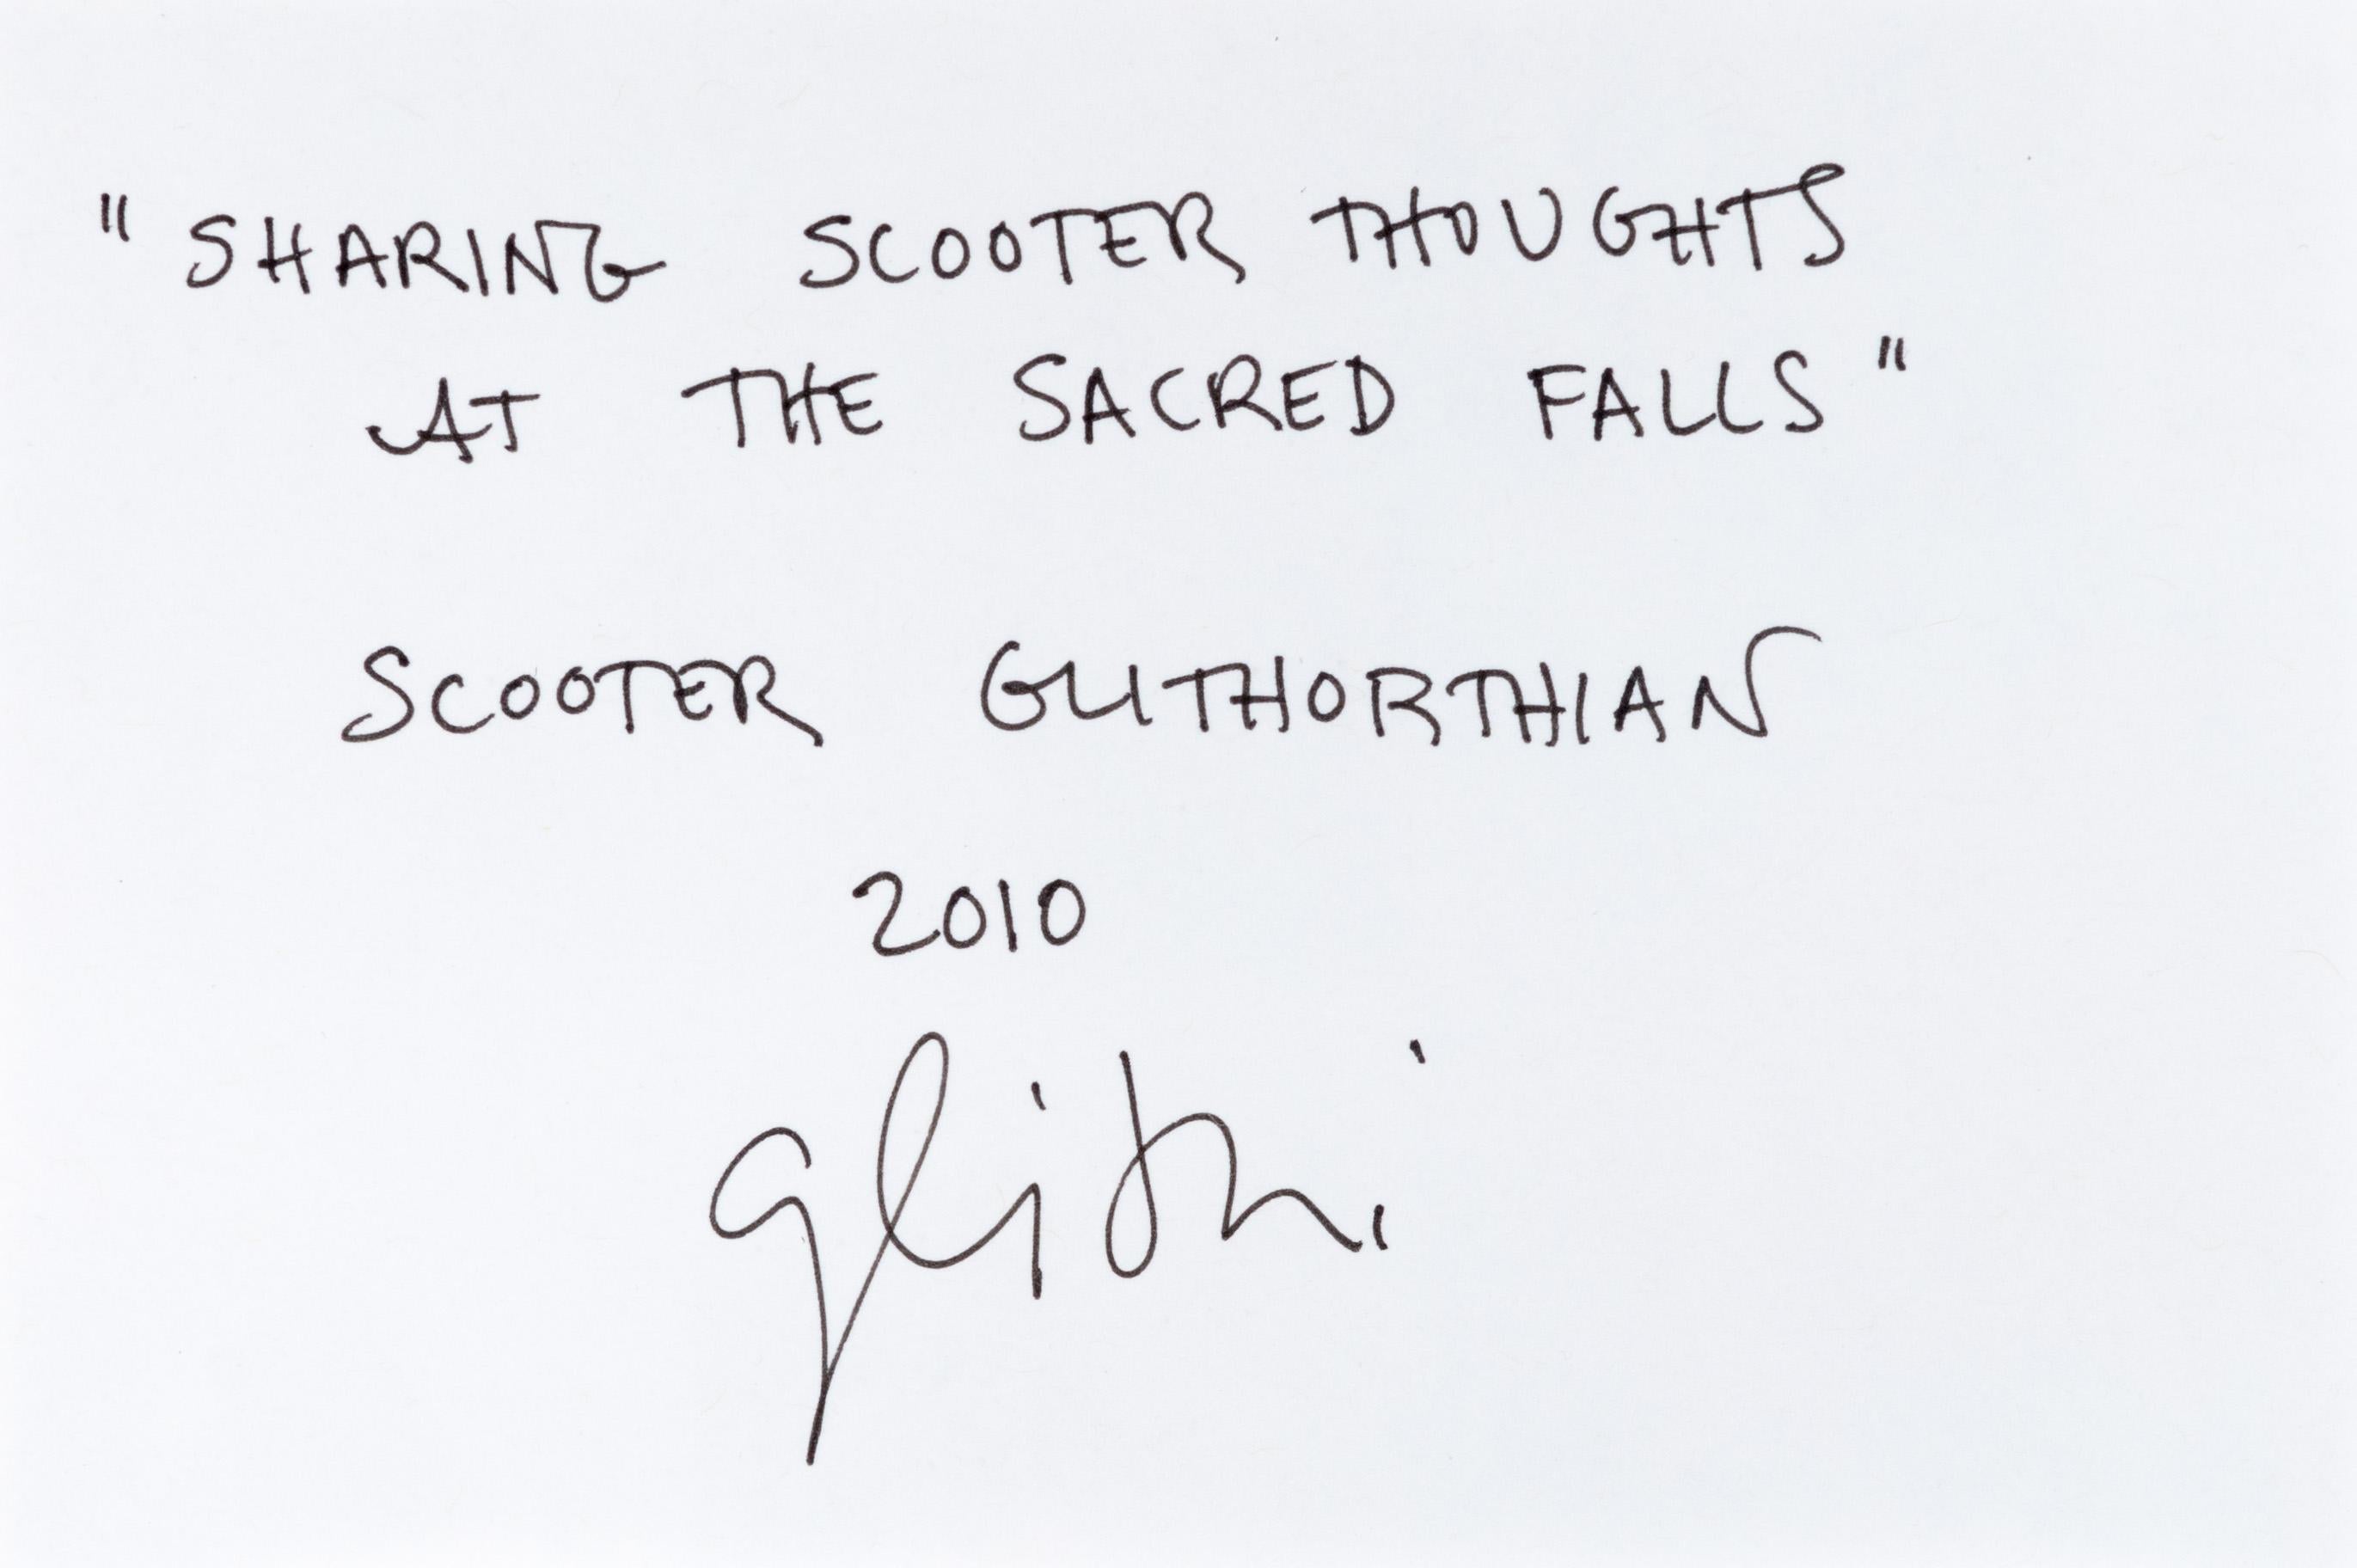 "SHARING SCOOTER THOUGHTS
AT THE SACRED FALLS"
SCOOTER GLITHORTHIAN
2010